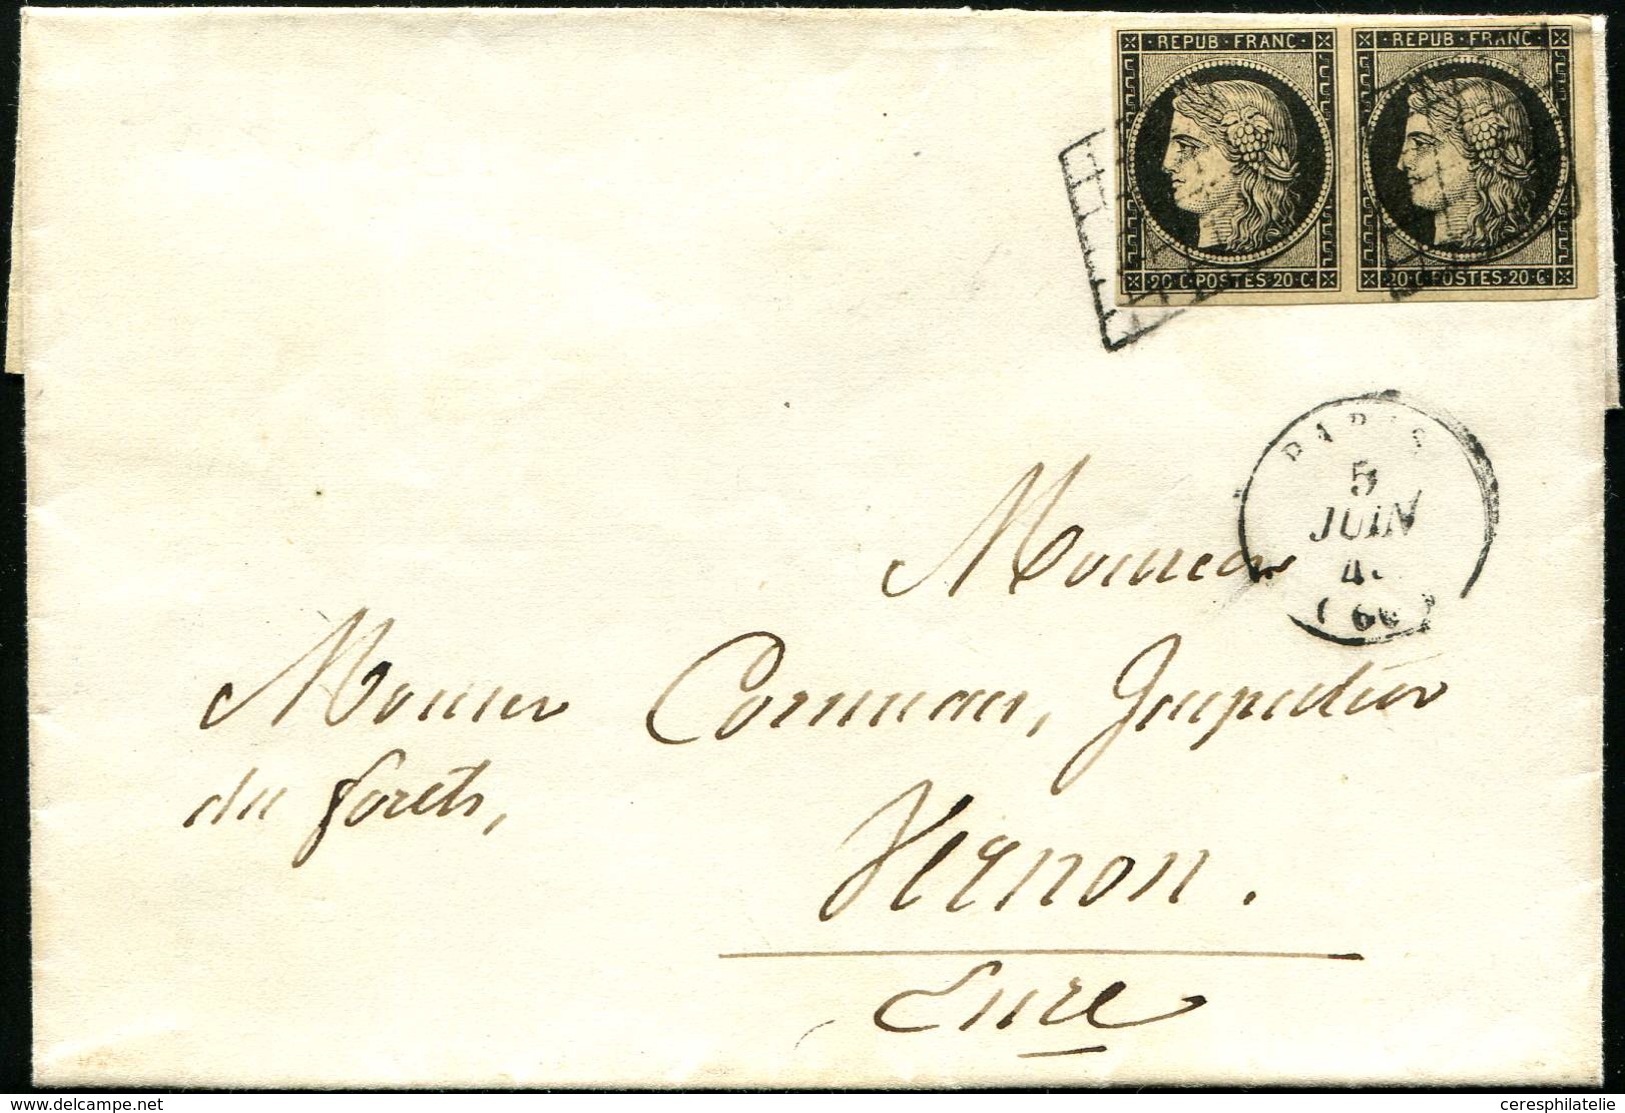 REPUB · FRANC · REPUB · FRANC ·
20 · C · POSTES · 20 · C · 20 · C · POSTES · 20 · C ·
PARIS
5
JUIN
4
(60)
Monsieur
Monsieur Cornuau, Inspecteur
des forêts,
Vernon.
Eure
delcampe.net
ceresphilatelie